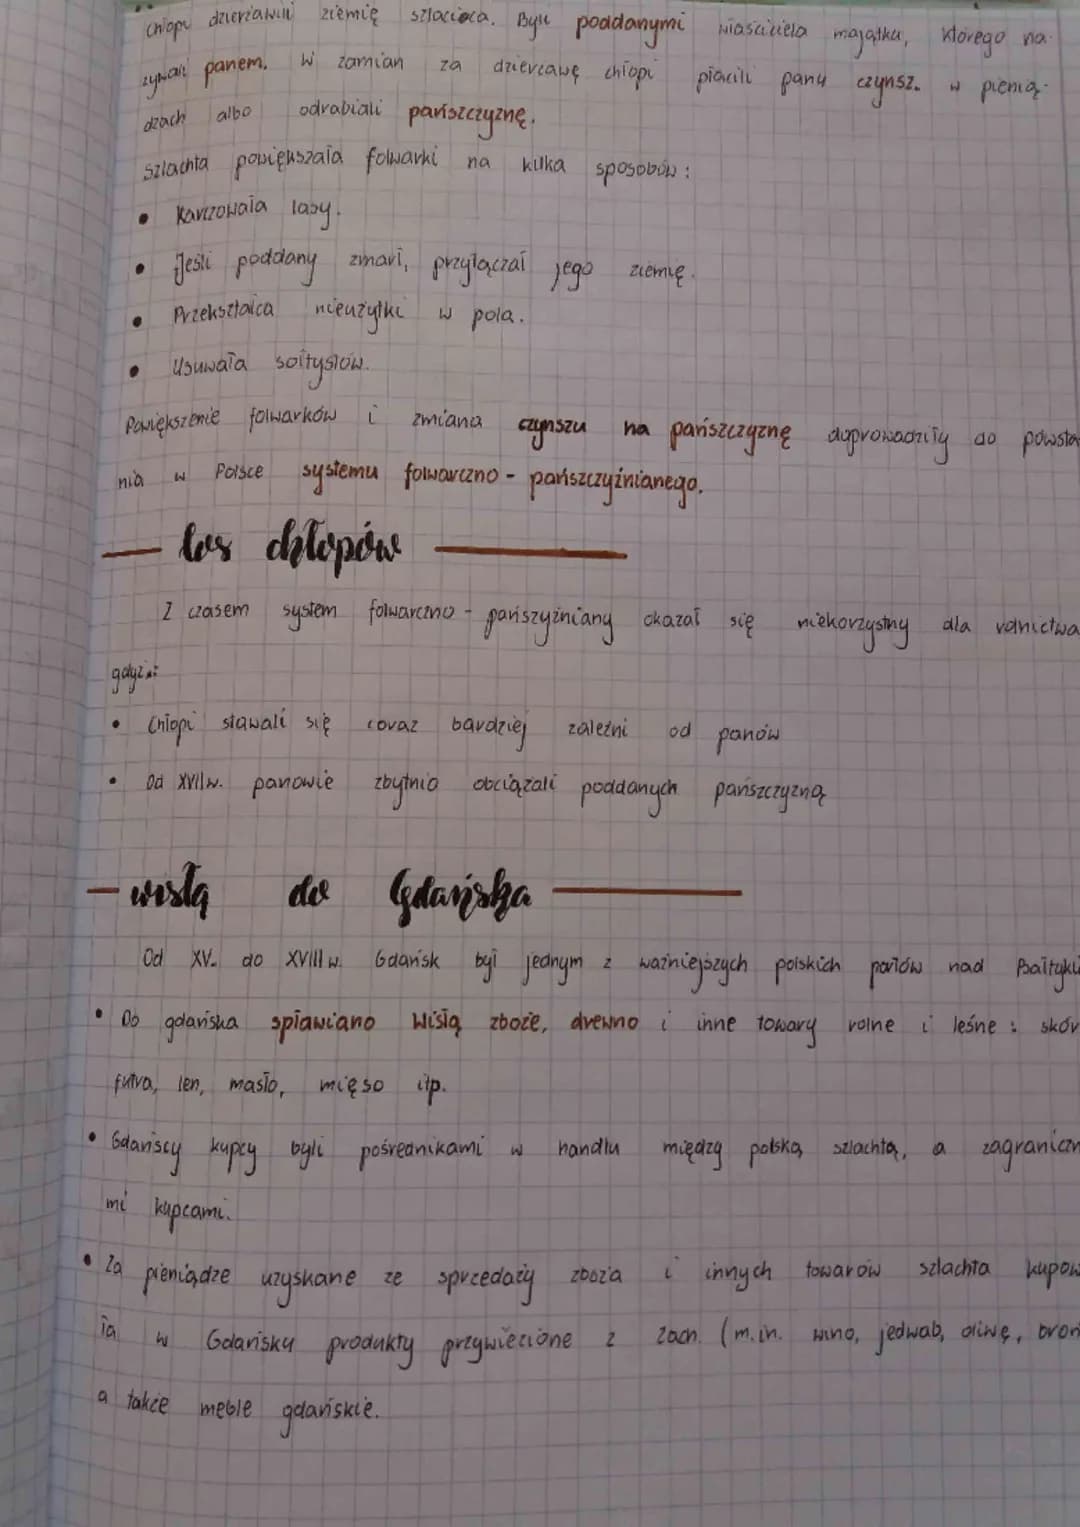 chłopi dzierżawili ziemię szlachcica. Byli poddanymi właściciela majątku, którego na-
zywali panem. W zamian za dzierżawę chłopi płacili panu czynsz. w pienią-
dzach albo odrabiali pańszczyznę.
Szlachta powiększała folwarki na kilka sposobów:
• Karczowała lasy.
• Jeśli poddany zmarł, przyłączał jego ziemię.
• Przekształca nieużytki w pola.
• Usuwała sołtysłów.
Powiększenie folwarków i zmiana czynszu na pańszczyznę doprowadziły do powsta
nia w Polsce systemu folwarczno - pańszczyźnianego.
los chłopów
Z czasem system folwarczno - pańszyźniany okazał się niekorzystny dla rolnictwa
gdyż:
• Chłopi stawali się coraz bardziej zależni od panów
• Od XVII w. panowie zbytnio obciążali poddanych pańszczyzną
wisłą do Gdańska
Od XV. do XVIII w. Gdańsk był jednym z ważniejszych polskich portów nad Bałtyki
• Do gdańska spławiano Wisłą zboże, drewno i inne towary rolne i leśne : skór
futra, len, masło, mięso itp.
• Gdańscy kupcy byli pośrednikami w handlu między polską szlachtą, a zagraniczn
mi kupcami.
• Za pieniądze uzyskane ze sprzedaży zboża i innych towarów szlachta kupow
ła w Gdańsku produkty przywiezione z zach. (m.in. wino, jedwab, oliwę, broń
a także meble gdańskie.